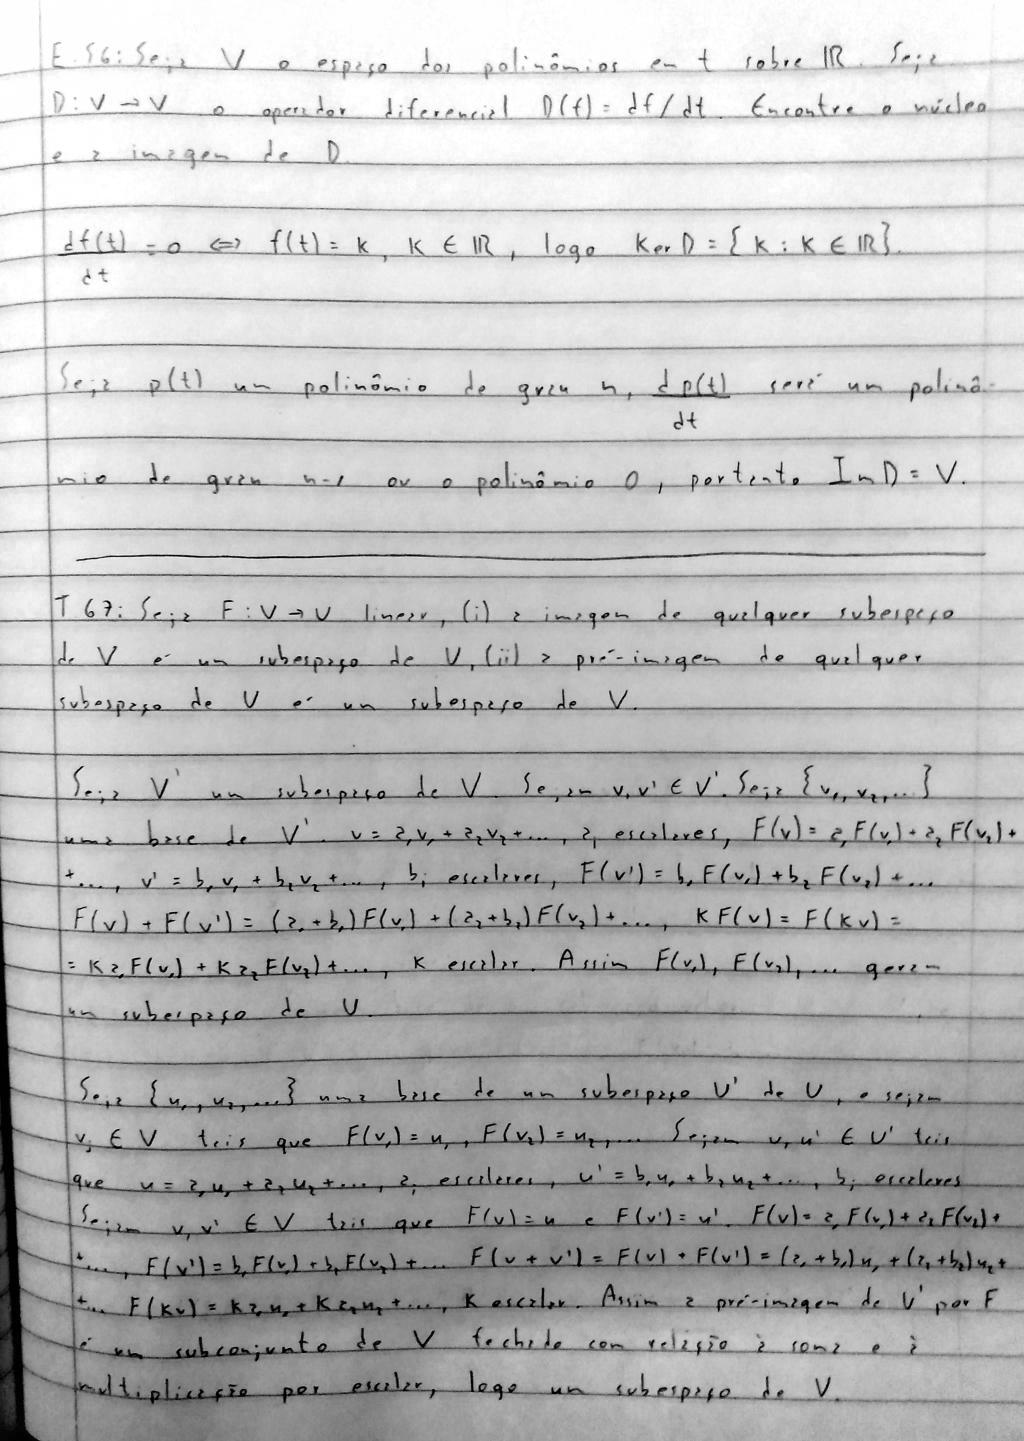 E. 56: Seja V o espaço dos polinômios em t sobre ℝ. Seja
D: V → V o operador diferencial D(f) = df/dt. Encontre o núcleo
e a imagem de D.
df(t)/dt = 0 ⇔ f(t) = k, k ∈ ℝ, logo Ker D = {k : k ∈ ℝ}.
Seja p(t) um polinômio de grau n, dp(t)/dt será um polinô-
mio de grau n-1 ou o polinômio 0, portanto Im D = V.
T 67: Seja F: V → U linear, (i) a imagem de qualquer subespaço
de V é um subespaço de U, (ii) a pré-imagem de qualquer
subespaço de U é um subespaço de V.
Seja V' um subespaço de V. Sejam v, v' ∈ V'. Seja {v₁, v₂, ...}
uma base de V'. v = a₁v₁ + a₂v₂ + ..., aᵢ escalares, F(v) = a₁F(v₁) + a₂F(v₂) +
+ ..., v' = b₁v₁ + b₂v₂ + ..., bᵢ escalares, F(v') = b₁F(v₁) + b₂F(v₂) + ...
F(v) + F(v') = (a₁+b₁)F(v₁) + (a₂+b₂)F(v₂) + ..., kF(v) = F(kv) =
= ka₁F(v₁) + ka₂F(v₂) + ..., k escalar. Assim F(v₁), F(v₂), ... geram
um subespaço de U.
Seja {u₁, u₂, ...} uma base de um subespaço U' de U, e sejam
vᵢ ∈ V tais que F(v₁) = u₁, F(v₂) = u₂, ... Sejam u, u' ∈ U' tais
que u = a₁u₁ + a₂u₂ + ..., aᵢ escalares, u' = b₁u₁ + b₂u₂ + ..., bᵢ escalares
Sejam v, v' ∈ V tais que F(v) = u e F(v') = u'. F(v) = a₁F(v₁) + a₂F(v₂) +
+ ..., F(v') = b₁F(v₁) + b₂F(v₂) + ... F(v + v') = F(v) + F(v') = (a₁+b₁)u₁ + (a₂+b₂)u₂ +
+ ... F(kv) = ka₁u₁ + ka₂u₂ + ..., k escalar. Assim a pré-imagem de U' por F
é um subconjunto de V fechado com relação à soma e à
multiplicação por escalar, logo um subespaço de V.